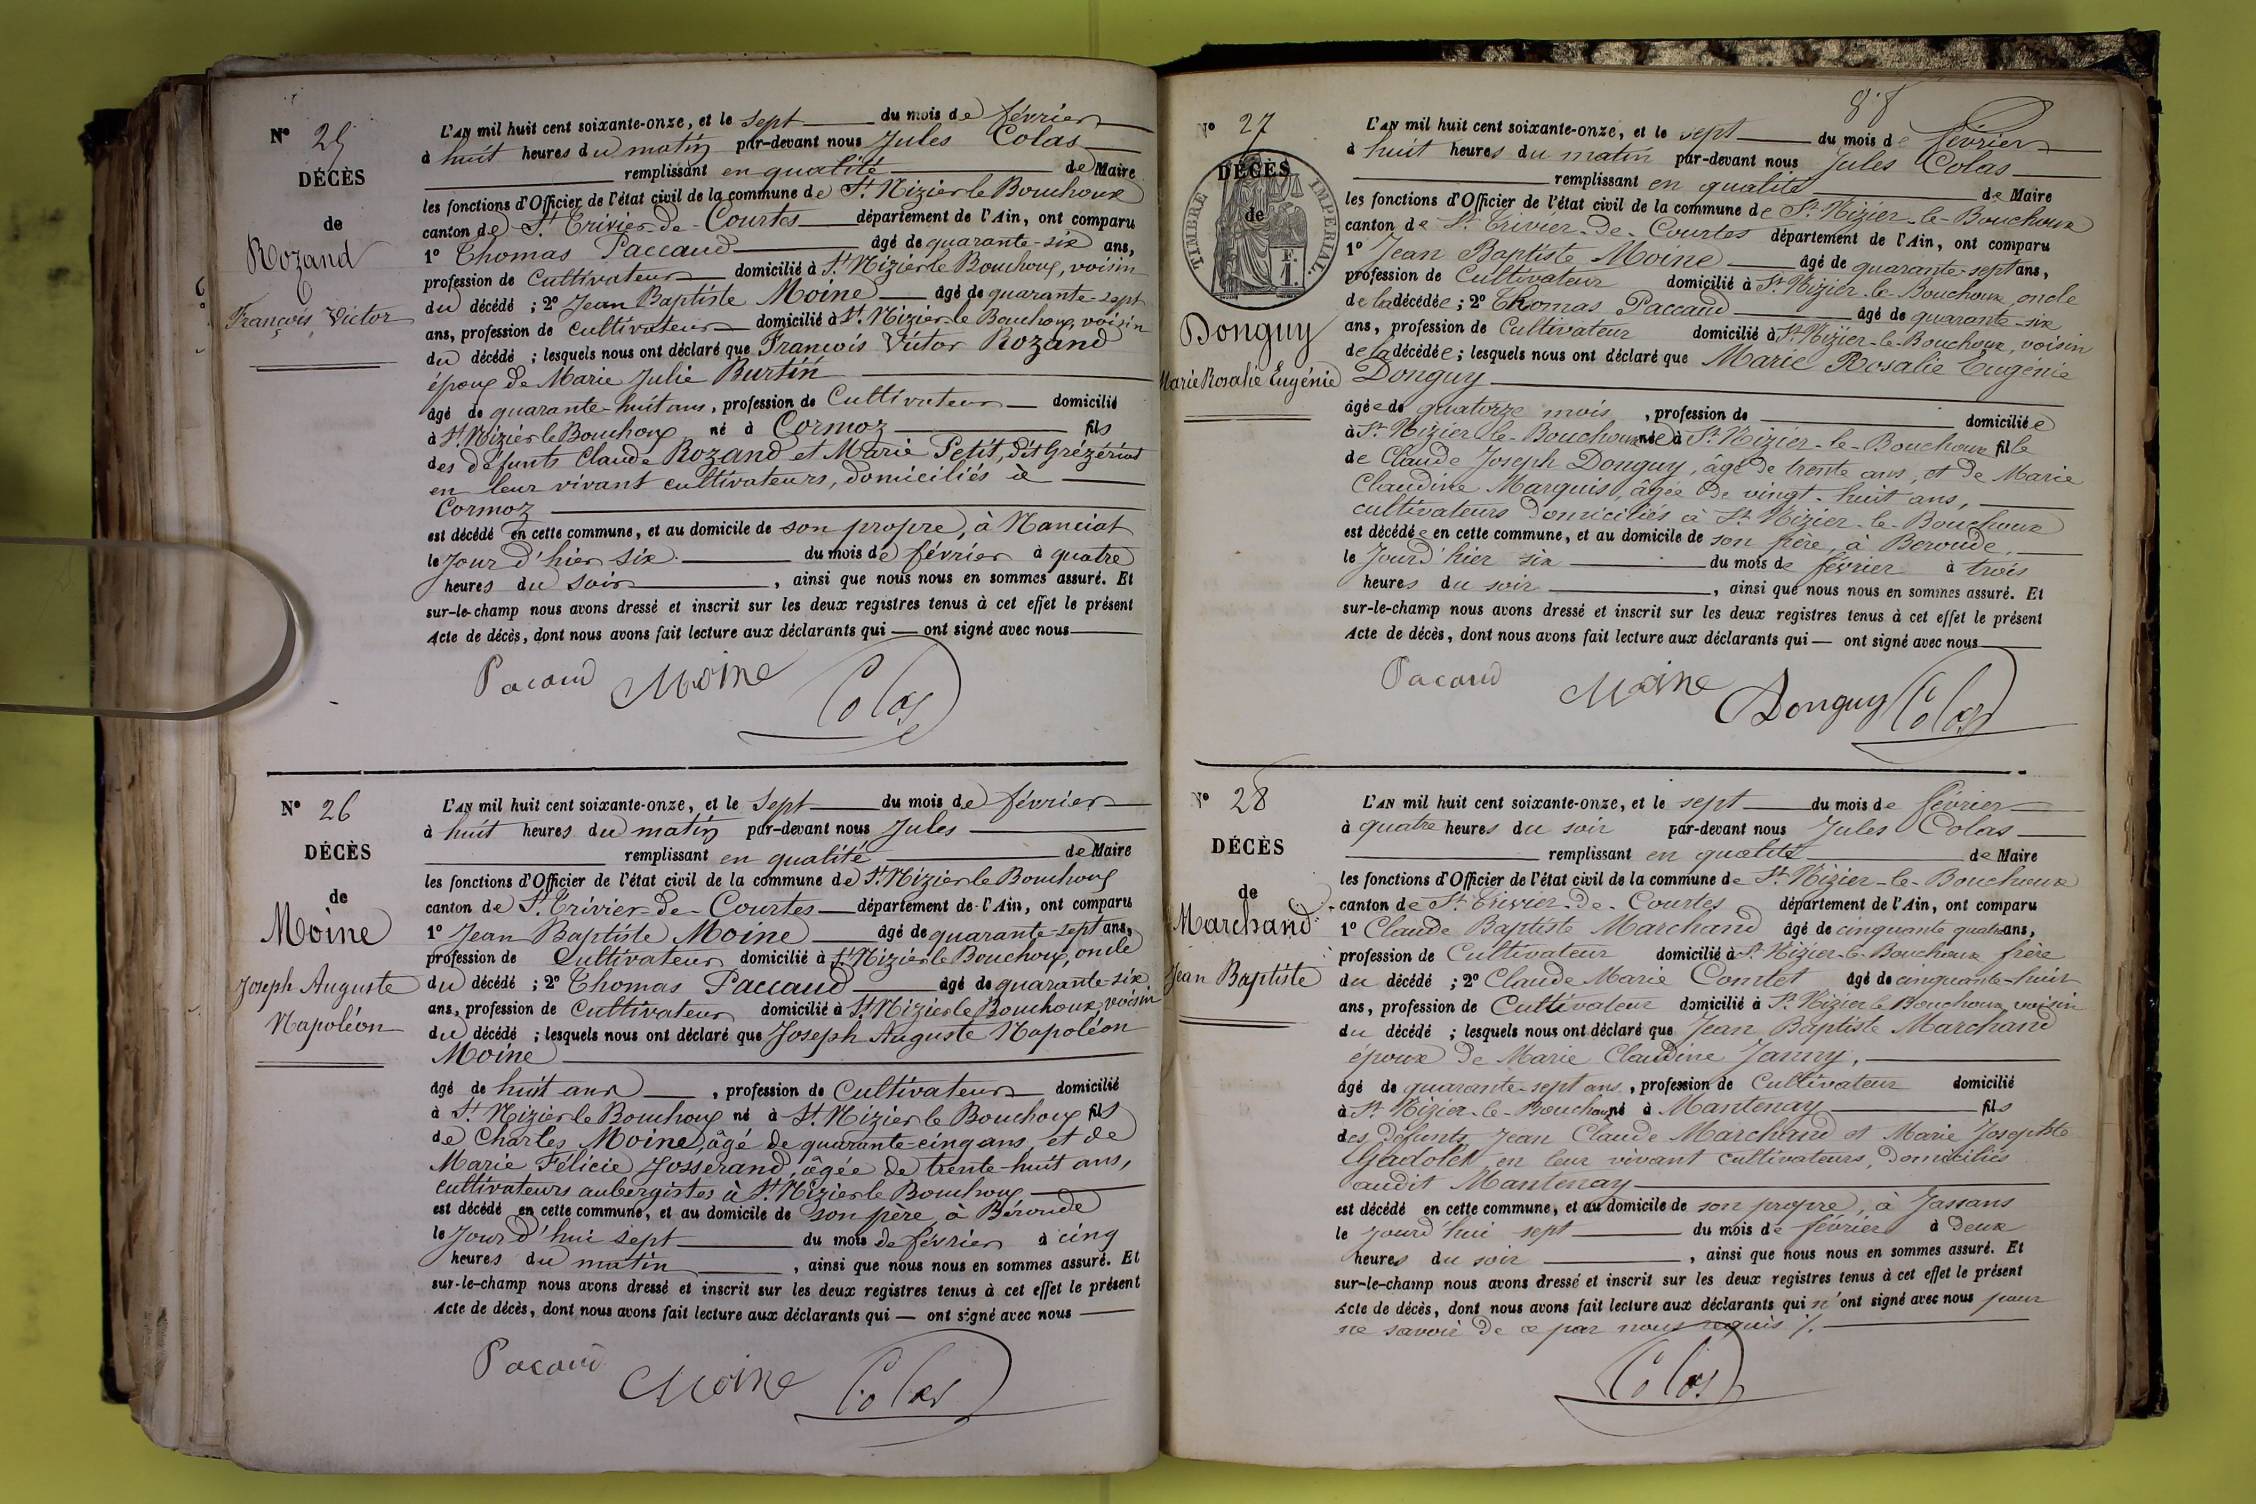 N° 25
DÉCÈS
de
Rozand
François Victor
L'AN mil huit cent soixante-onze, et le sept du mois de février
à huit heures du matin par-devant nous Jules Colas
remplissant en qualité de Maire
les fonctions d'Officier de l'état civil de la commune de St Nizier le Bouchoux
canton de St Trivier-de-Courtes département de l'Ain, ont comparu
1° Thomas Paccaud âgé de quarante-six ans,
profession de Cultivateur domicilié à St Nizier le Bouchoux, voisin
du décédé ; 2° Jean Baptiste Moine âgé de quarante-sept
ans, profession de Cultivateur domicilié à St Nizier le Bouchoux, voisin
du décédé ; lesquels nous ont déclaré que François Victor Rozand
époux de Marie Julie Burtin
âgé de quarante-huit ans, profession de Cultivateur domicilié
à St Nizier le Bouchoux né à Cormoz fils
des défunts Claude Rozand et Marie Petit, dit
en leur vivant cultivateurs, domiciliés à
Cormoz
est décédé en cette commune, et au domicile de son propre, à Nanciat
le Jour d'hier six du mois de février à quatre
heures du soir , ainsi que nous nous en sommes assuré. Et
sur-le-champ nous avons dressé et inscrit sur les deux registres tenus à cet effet le présent
Acte de décès, dont nous avons fait lecture aux déclarants qui ont signé avec nous
Pacaud Moine Colas
N° 26
DÉCÈS
de
Moine
Joseph Auguste
Napoléon
L'AN mil huit cent soixante-onze, et le Sept du mois de février
à huit heures du matin par-devant nous Jules
remplissant en qualité de Maire
les fonctions d'Officier de l'état civil de la commune de St Nizier le Bouchoux
canton de St Trivier-de-Courtes département de l'Ain, ont comparu
1° Jean Baptiste Moine âgé de quarante-sept ans,
profession de Cultivateur domicilié à St Nizier le Bouchoux, oncle
du décédé ; 2° Thomas Paccaud âgé de quarante six
ans, profession de Cultivateur domicilié à St Nizier le Bouchoux, voisin
du décédé ; lesquels nous ont déclaré que Joseph Auguste Napoléon
Moine
âgé de huit ans , profession de Cultivateur domicilié
à St Nizier le Bouchoux né à St Nizier le Bouchoux fils
de Charles Moine, âgé de quarante-cinq ans, et de
Marie Félicie Josserand, âgée de trente-huit ans,
cultivateurs aubergistes à St Nizier le Bouchoux
est décédé en cette commune, et au domicile de son père, à Béroude
le Jour d'hui sept du mois de février à cinq
heures du matin , ainsi que nous nous en sommes assuré. Et
sur-le-champ nous avons dressé et inscrit sur les deux registres tenus à cet effet le présent
Acte de décès, dont nous avons fait lecture aux déclarants qui ont signé avec nous
Pacaud Moine Colas
N° 27
DÉCÈS
de
TIMBRE IMPERIAL.
F.
1.
Donguy
Marie Rosalie Eugénie
L'AN mil huit cent soixante-onze, et le sept du mois de février
à huit heures du matin par-devant nous Jules Colas
remplissant en qualité de Maire
les fonctions d'Officier de l'état civil de la commune de St Nizier-le-Bouchoux
canton de St Trivier-de-Courtes département de l'Ain, ont comparu
1° Jean Baptiste Moine âgé de quarante-sept ans,
profession de Cultivateur domicilié à St Nizier-le-Bouchoux, oncle
de la décédée ; 2° Thomas Paccaud âgé de quarante-six
ans, profession de Cultivateur domicilié à St Nizier-le-Bouchoux, voisin
de la décédée ; lesquels nous ont déclaré que Marie Rosalie Eugénie
Donguy
âgée de quatorze mois , profession de domiciliée
à St Nizier-le-Bouchoux née à St Nizier-le-Bouchoux fille
de Claude Joseph Donguy, âgé de trente ans, et de Marie
Claudine Marquis, âgée de vingt-huit ans,
cultivateurs domiciliés à St Nizier-le-Bouchoux
est décédée en cette commune, et au domicile de son père, à Beroude,
le Jour d'hier six du mois de février à trois
heures du soir , ainsi que nous nous en sommes assuré. Et
sur-le-champ nous avons dressé et inscrit sur les deux registres tenus à cet effet le présent
Acte de décès, dont nous avons fait lecture aux déclarants qui ont signé avec nous
Pacaud Moine Donguy Colas
N° 28
DÉCÈS
de
Marchand
Jean Baptiste
L'AN mil huit cent soixante-onze, et le sept du mois de février
à quatre heures du soir par-devant nous Jules Colas
remplissant en qualité de Maire
les fonctions d'Officier de l'état civil de la commune de St Nizier-le-Bouchoux
canton de St Trivier-de-Courtes département de l'Ain, ont comparu
1° Claude Baptiste Marchand âgé de cinquante quatre ans,
profession de Cultivateur domicilié à St Nizier-le-Bouchoux frère
du décédé ; 2° Claude Marie Comtet âgé de cinquante-huit
ans, profession de Cultivateur domicilié à St Nizier le Bouchoux, voisin
du décédé ; lesquels nous ont déclaré que Jean Baptiste Marchand
époux de Marie Claudine Janny,
âgé de quarante-sept ans, profession de Cultivateur domicilié
à St Nizier-le-Bouchoux né à Mantenay fils
des défunts Jean Claude Marchand et Marie Josephte
en leur vivant cultivateurs, domiciliés
audit Mantenay
est décédé en cette commune, et au domicile de son propre, à Jassans
le jourd'hui sept du mois de février à deux
heures du soir , ainsi que nous nous en sommes assuré. Et
sur-le-champ nous avons dressé et inscrit sur les deux registres tenus à cet effet le présent
Acte de décès, dont nous avons fait lecture aux déclarants qui n'ont signé avec nous pour
ne savoir de ce par nous requis /.
Colas